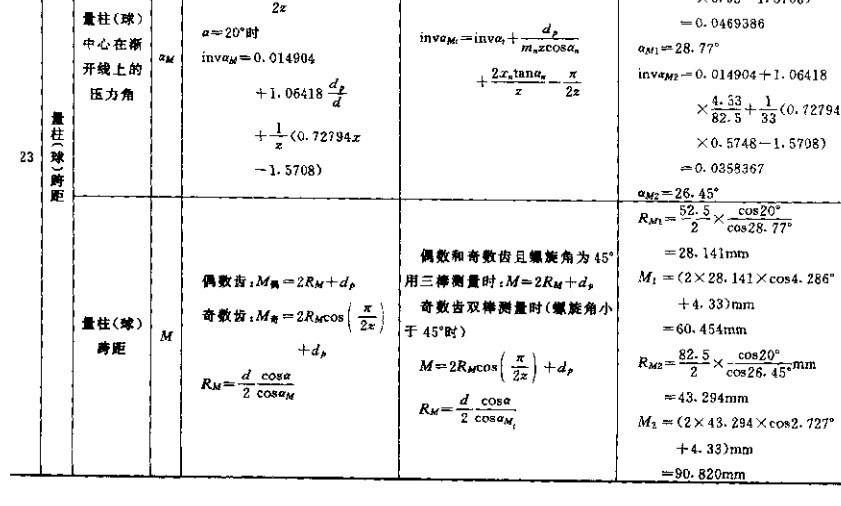 2z
×0795−1.5708)
量柱(球)
中心在渐
开线上的
压力角
α_M
α=20°时
invα_M=0.014904
+1.06418 d_p/d
+1/z(0.72794x
−1.5708)
invα_Mt=invα_t+d_p/(m_n z cosα_n)
+2x_n tanα_n/z−π/2z
=0.0469386
α_M1=28.77°
invα_M2=0.014904+1.06418
×4.33/82.5+1/33(0.72794
×0.5748−1.5708)
=0.0358367
α_M2=26.45°
23
量柱(球)跨距
量柱(球)
跨距
M
偶数齿:M偶=2R_M+d_p
奇数齿:M奇=2R_M cos(π/2z)
+d_p
R_M=d/2 cosα/cosα_M
偶数和奇数齿且螺旋角为45°
用三棒测量时:M=2R_M+d_p
奇数齿双棒测量时(螺旋角小
于45°时)
M=2R_M cos(π/2z)+d_p
R_M=d/2 cosα/cosα_Mt
R_M1=52.5/2×cos20°/cos28.77°
=28.141mm
M_1=(2×28.141×cos4.286°
+4.33)mm
=60.454mm
R_M2=82.5/2×cos20°/cos26.45°mm
=43.294mm
M_2=(2×43.294×cos2.727°
+4.33)mm
=90.820mm